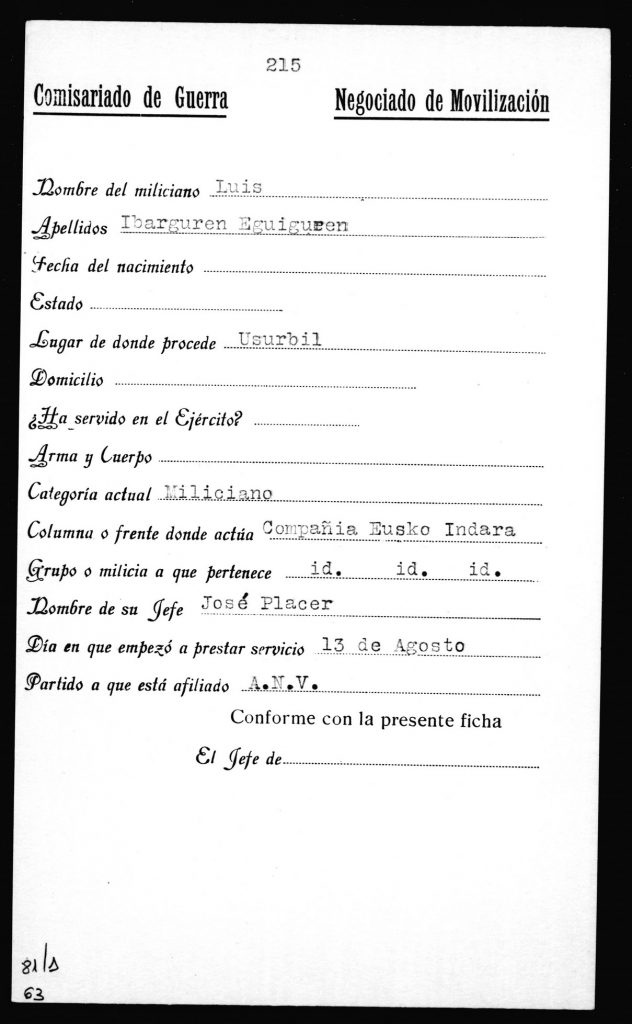 215
Comisariado de Guerra Negociado de Movilización
Nombre del miliciano Luis
Apellidos Ibarguren Eguiguren
Fecha del nacimiento
Estado
Lugar de donde procede Usurbil
Domicilio
¿Ha servido en el Ejército?
Arma y Cuerpo
Categoría actual Miliciano
Columna o frente donde actúa Compañia Eusko Indara
Grupo o milicia a que pertenece id. id. id.
Nombre de su Jefe José Placer
Día en que empezó a prestar servicio 13 de Agosto
Partido a que está afiliado A.N.V.
Conforme con la presente ficha
El Jefe de
81/1
63